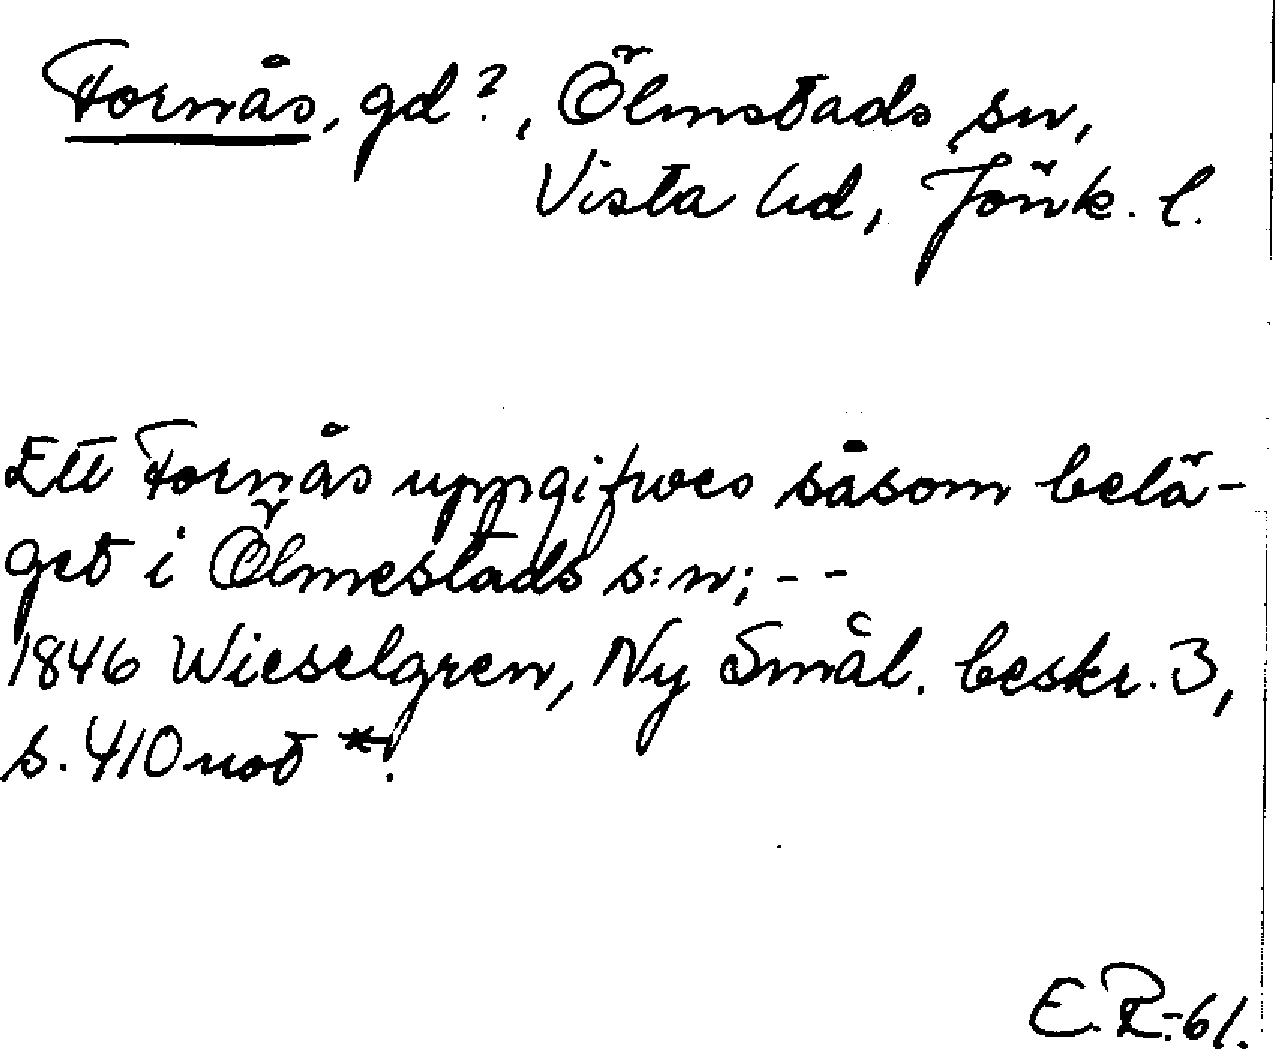 Fornås, gd?, Ölmstads sn,
Vista hd, Jönk. l.
Ett Fornås uppgifwes såsom belä-
get i Ölmestads s:n; - -
1846 Wieselgren, Ny Smål. beskr. 3,
s. 410 not *.
E.R.-61.